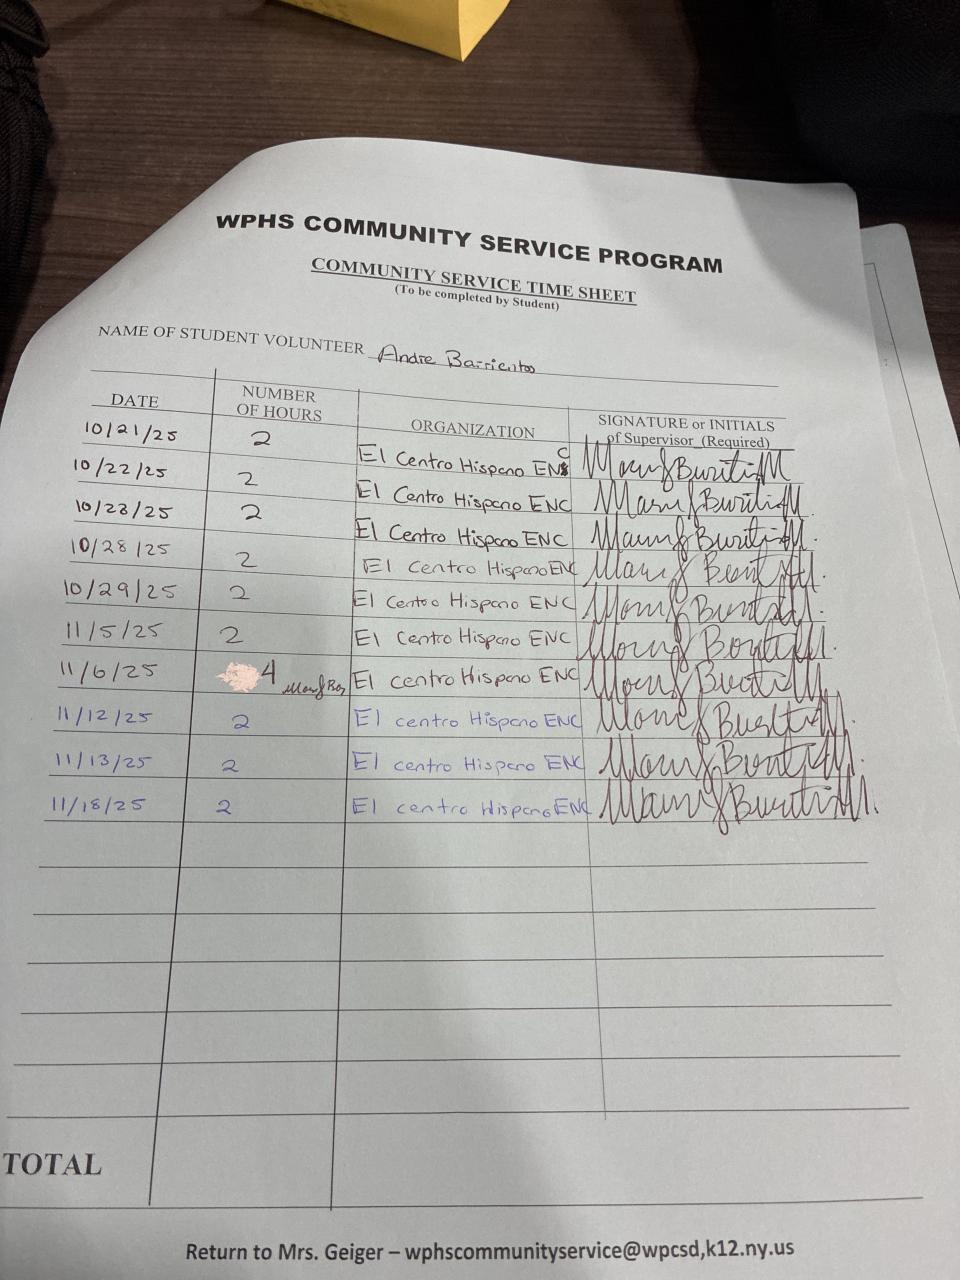 WPHS COMMUNITY SERVICE PROGRAM
COMMUNITY SERVICE TIME SHEET
(To be completed by Student)
NAME OF STUDENT VOLUNTEER Andre Barrientos
DATE NUMBER OF HOURS ORGANIZATION SIGNATURE or INITIALS of Supervisor (Required)
10/21/25 2 El Centro Hispano ENC
10/22/25 2 El Centro Hispano ENC
10/23/25 2 El Centro Hispano ENC
10/28/25 2 El Centro Hispano ENC
10/29/25 2 El Centro Hispano ENC
11/5/25 2 El Centro Hispano ENC
11/6/25 4 El centro Hispano ENC
11/12/25 2 El centro Hispano ENC
11/13/25 2 El centro Hispano ENC
11/18/25 2 El centro Hispano ENC
TOTAL
Return to Mrs. Geiger – wphscommunityservice@wpcsd,k12.ny.us